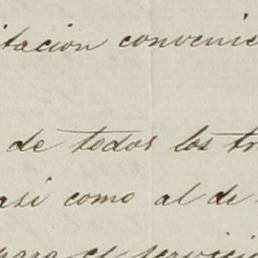 itacion convenie
de todos los tr
asi como al de
para el servicio